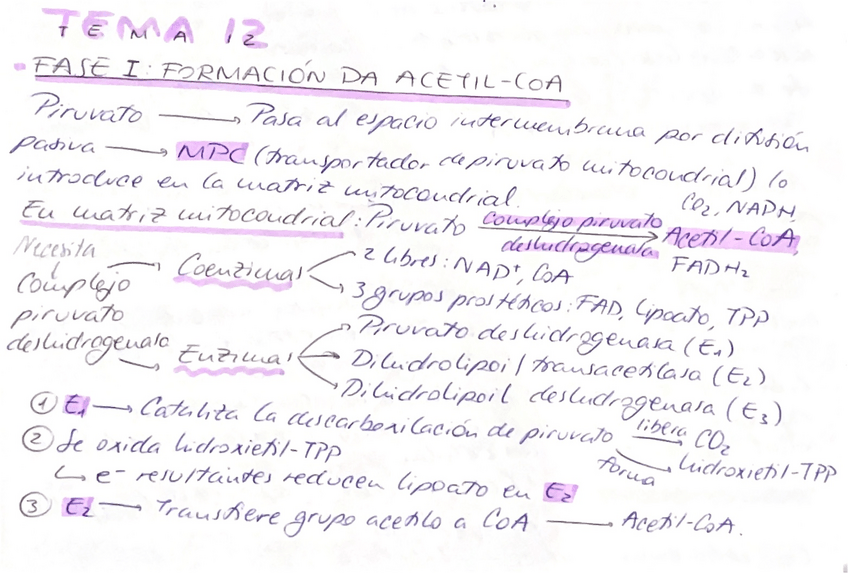 TEMA 12
FASE I: FORMACIÓN DA ACETIL-COA
Piruvato → Pasa al espacio intermembrana por difusión
pasiva → MPC (transportador de piruvato mitocondrial) lo
introduce en la matriz mitocondrial.
CO₂, NADH,
En matriz mitocondrial: Piruvato complejo piruvato deshidrogenasa → Acetil-CoA,
FADH₂
Necesita
↓
Complejo
piruvato
deshidrogenasa
→ Coenzimas
2 libres: NAD⁺, CoA
3 grupos prostéticos: FAD, lipoato, TPP
→ Enzimas
Piruvato deshidrogenasa (E₁)
Dihidrolipoil transacetilasa (E₂)
Dihidrolipoil deshidrogenasa (E₃)
① E₁ → Cataliza la descarboxilación de piruvato libera → CO₂
forma → hidroxietil-TPP
② Se oxida hidroxietil-TPP
↳ e⁻ resultantes reducen lipoato en E₂
③ E₂ → Transfiere grupo acetilo a CoA → Acetil-CoA.